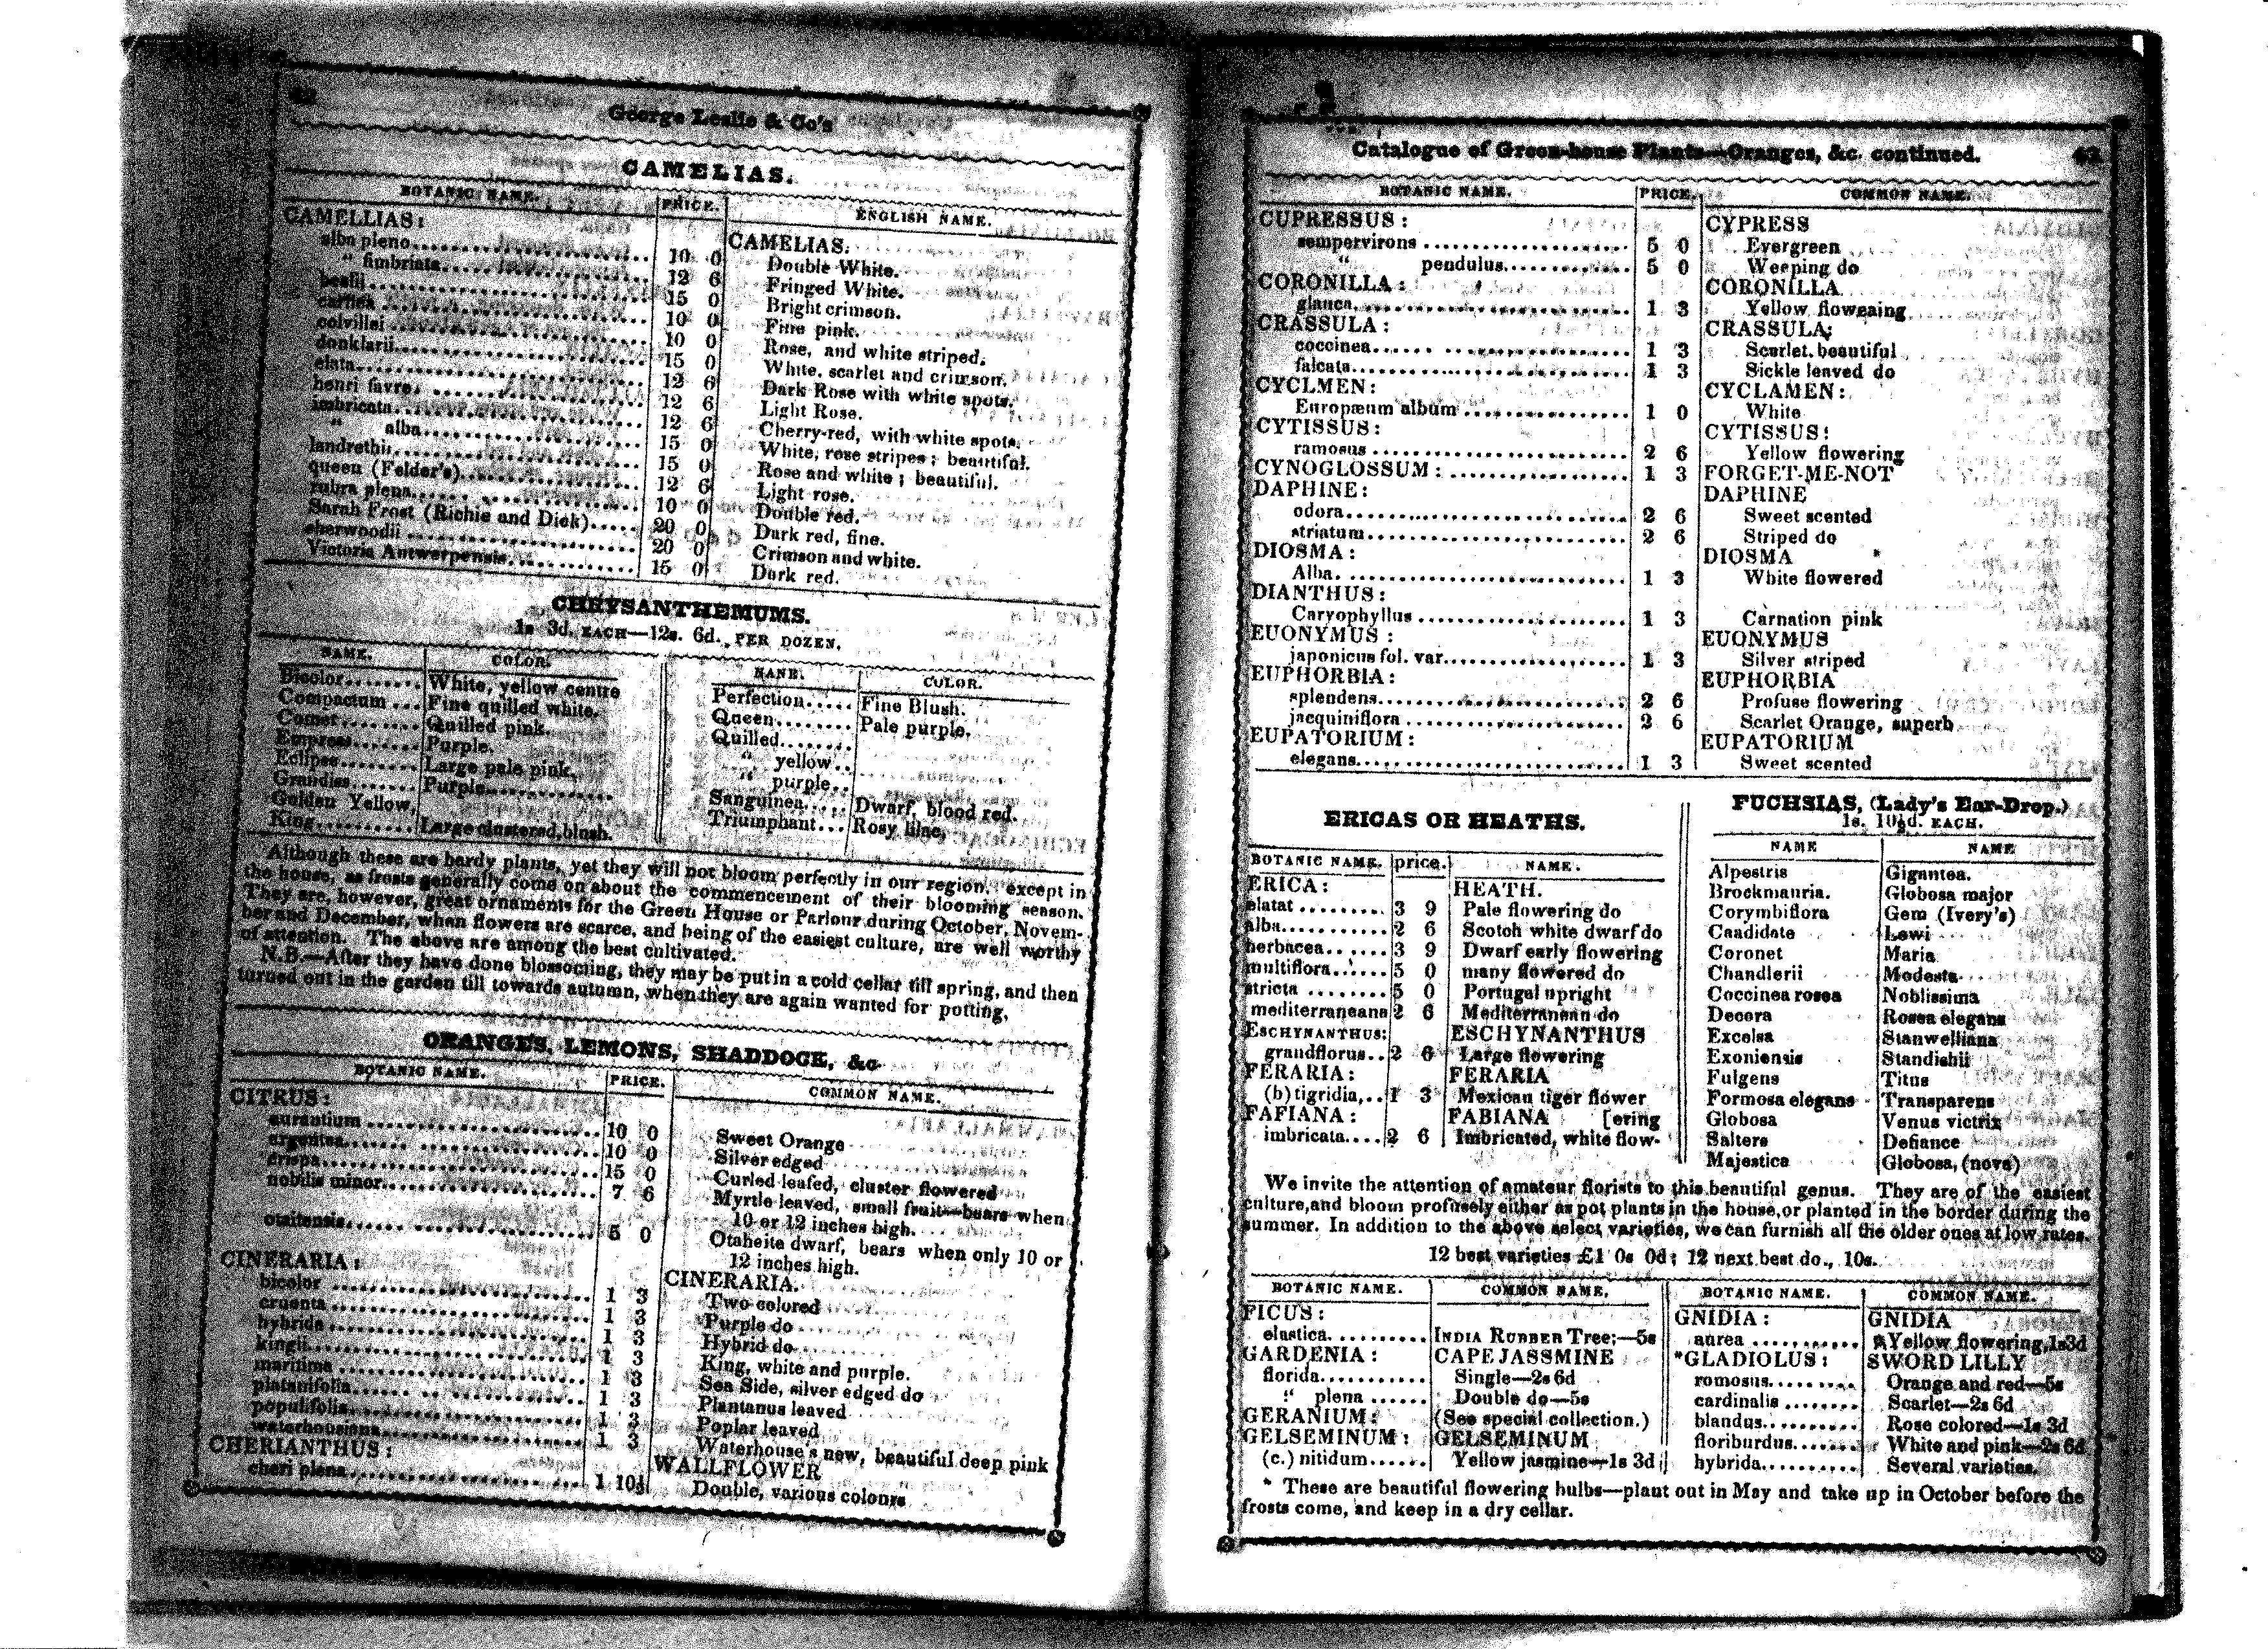 42
George Leslie & Co's
CAMELIAS.
BOTANIC NAME. PRICE. ENGLISH NAME.
CAMELLIAS: CAMELIAS.
alba pleno 10 0 Double White.
" fimbriata 12 6 Fringed White.
bealii 15 0 Bright crimson.
carnea 10 0 Fine pink.
colvillei 10 0 Rose, and white striped.
donklarii 15 0 White, scarlet and crimson.
elata 12 6 Dark Rose with white spots.
henri favre 12 6 Light Rose.
imbricata 12 6 Cherry-red, with white spots.
" alba 15 0 White, rose stripes; beautiful.
landrethii 15 0 Rose and white; beautiful.
queen (Felder's) 12 6 Light rose.
rubra plena 10 0 Double red.
Sarah Frost (Richie and Dick) 20 0 Dark red, fine.
sherwoodii 20 0 Crimson and white.
Victoria Antwerpensis 15 0 Dark red.
CHRYSANTHEMUMS.
1s 3d. EACH—12s. 6d. PER DOZEN.
NAME. COLOR. NAME. COLOR.
Bicolor White, yellow centre Perfection Fine Blush.
Compactum Fine quilled white. Queen Pale purple.
Comet Quilled pink. Quilled
Empress Purple. " yellow
Eclipse Large pale pink. " purple
Grandiss Purple Sanguinea Dwarf, blood red.
Golden Yellow, Triumphant Rosy lilac,
King Large clustered, blush.
Although these are hardy plants, yet they will not bloom perfectly in our region, except in
the house, as frosts generally come on about the commencement of their blooming season.
They are, however, great ornaments for the Green House or Parlour during October, Novem-
ber and December, when flowers are scarce, and being of the easiest culture, are well worthy
of attention. The above are among the best cultivated.
N.B.—After they have done blossoming, they may be put in a cold cellar till spring, and then
turned out in the garden till towards autumn, when they are again wanted for potting.
ORANGES, LEMONS, SHADDOCK, &c.
BOTANIC NAME. PRICE. COMMON NAME.
CITRUS:
aurantium 10 0 Sweet Orange
argentea 10 0 Silver edged
crispa 15 0 Curled leafed, cluster flowered
nobilis minor 7 6 Myrtle leaved, small fruit—bears when
10 or 12 inches high.
otaitensis 5 0 Otaheite dwarf, bears when only 10 or
12 inches high.
CINERARIA: CINERARIA.
bicolor 1 3 Two colored
cruenta 1 3 Purple do
hybrida 1 3 Hybrid do
kingii 1 3 King, white and purple.
maritima 1 3 Sea Side, silver edged do
platanifolia 1 3 Plantanus leaved
populifolia 1 3 Poplar leaved
waterhousiana 1 3 Waterhouse's new, beautiful deep pink
CHERIANTHUS: WALLFLOWER
cheri plena 1 10½ Double, various colours
Catalogue of Green-house Plants—Oranges, &c. continued. 43
BOTANIC NAME. PRICE. COMMON NAME.
CUPRESSUS: CYPRESS
sempervirons 5 0 Evergreen
" pendulus 5 0 Weeping do
CORONILLA: CORONILLA
glauca 1 3 Yellow floweaing
CRASSULA: CRASSULA:
coccinea 1 3 Scarlet beautiful
falcata 1 3 Sickle leaved do
CYCLMEN: CYCLAMEN:
Europæum album 1 0 White
CYTISSUS: CYTISSUS:
ramosus 2 6 Yellow flowering
CYNOGLOSSUM: 1 3 FORGET-ME-NOT
DAPHINE: DAPHINE
odora 2 6 Sweet scented
striatum 2 6 Striped do
DIOSMA: DIOSMA
Alba. 1 3 White flowered
DIANTHUS:
Caryophyllus 1 3 Carnation pink
EUONYMUS: EUONYMUS
japonicus fol. var. 1 3 Silver striped
EUPHORBIA: EUPHORBIA
splendens 2 6 Profuse flowering
jacquiniflora 2 6 Scarlet Orange, superb
EUPATORIUM: EUPATORIUM
elegans 1 3 Sweet scented
ERICAS OR HEATHS.
BOTANIC NAME. price. NAME.
ERICA: HEATH.
elatat 3 9 Pale flowering do
alba 2 6 Scotch white dwarf do
herbacea 3 9 Dwarf early flowering
multiflora 5 0 many flowered do
stricta 5 0 Portugal upright
mediterraneana 2 6 Mediterranean do
ESCHYNANTHUS: ESCHYNANTHUS
grandflorus 2 6 Large flowering
FERARIA: FERARIA
(b) tigridia, 1 3 Mexican tiger flower
FAFIANA: FABIANA [ering
imbricata 2 6 Imbricated, white flow-
FUCHSIAS, (Lady's Ear-Drop.)
1s. 10½d. EACH.
NAME NAME
Alpestris Gigantea.
Brockmauria. Globosa major
Corymbiflora Gem (Ivery's)
Candidate Lowi
Coronet Maria
Chandlerii Modesta
Coccinea rosea Noblissima
Decora Rosea elegans
Excelsa Stanwelliana
Exoniensis Standishii
Fulgens Titus
Formosa elegans Transparens
Globosa Venus victrix
Salters Defiance
Majestica Globosa, (nova)
We invite the attention of amateur florists to this beautiful genus. They are of the easiest
culture, and bloom profusely either as pot plants in the house, or planted in the border during the
summer. In addition to the above select varieties, we can furnish all the older ones at low rates.
12 best varieties £1 0s 0d; 12 next best do., 10s.
BOTANIC NAME. COMMON NAME. BOTANIC NAME. COMMON NAME.
FICUS: GNIDIA: GNIDIA
elastica. INDIA RUBBER Tree;—5s aurea Yellow flowering, 1s3d
GARDENIA: CAPE JASSMINE *GLADIOLUS: SWORD LILLY
florida Single—2s 6d romosus Orange and red—5s
" plena Double do—5s cardinalis Scarlet—2s 6d
GERANIUM: (See special collection.) blandus Rose colored—1s 3d
GELSEMINUM: GELSEMINUM floriburdus White and pink—2s 6d
(c.) nitidum Yellow jasmine—1s 3d hybrida Several varieties.
* These are beautiful flowering bulbs—plant out in May and take up in October before the
frosts come, and keep in a dry cellar.